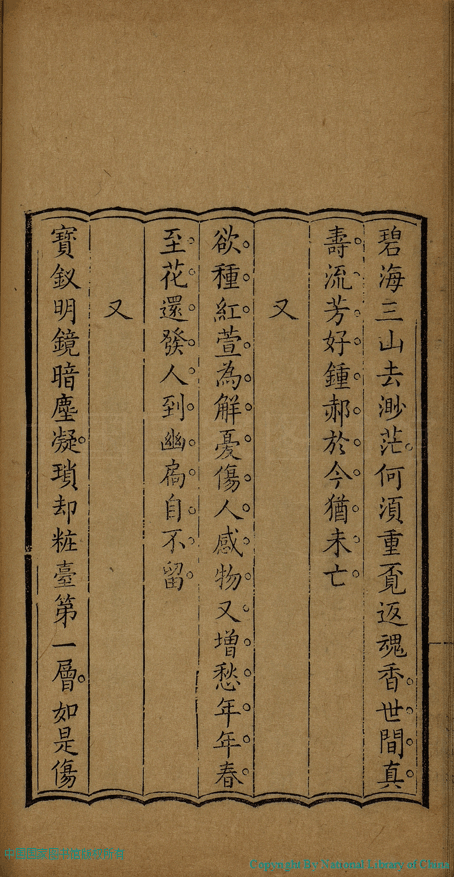 碧海三山去渺茫何須重覔返魂香世間真
壽流芳好鍾郝於今猶未亡
又
欲種紅萱為解憂傷人感物又增愁年年春
至花還發人到幽扃自不留
又
寶釵明鏡暗塵凝瑣却粧臺第一層如是傷
Copyright By National Library of China